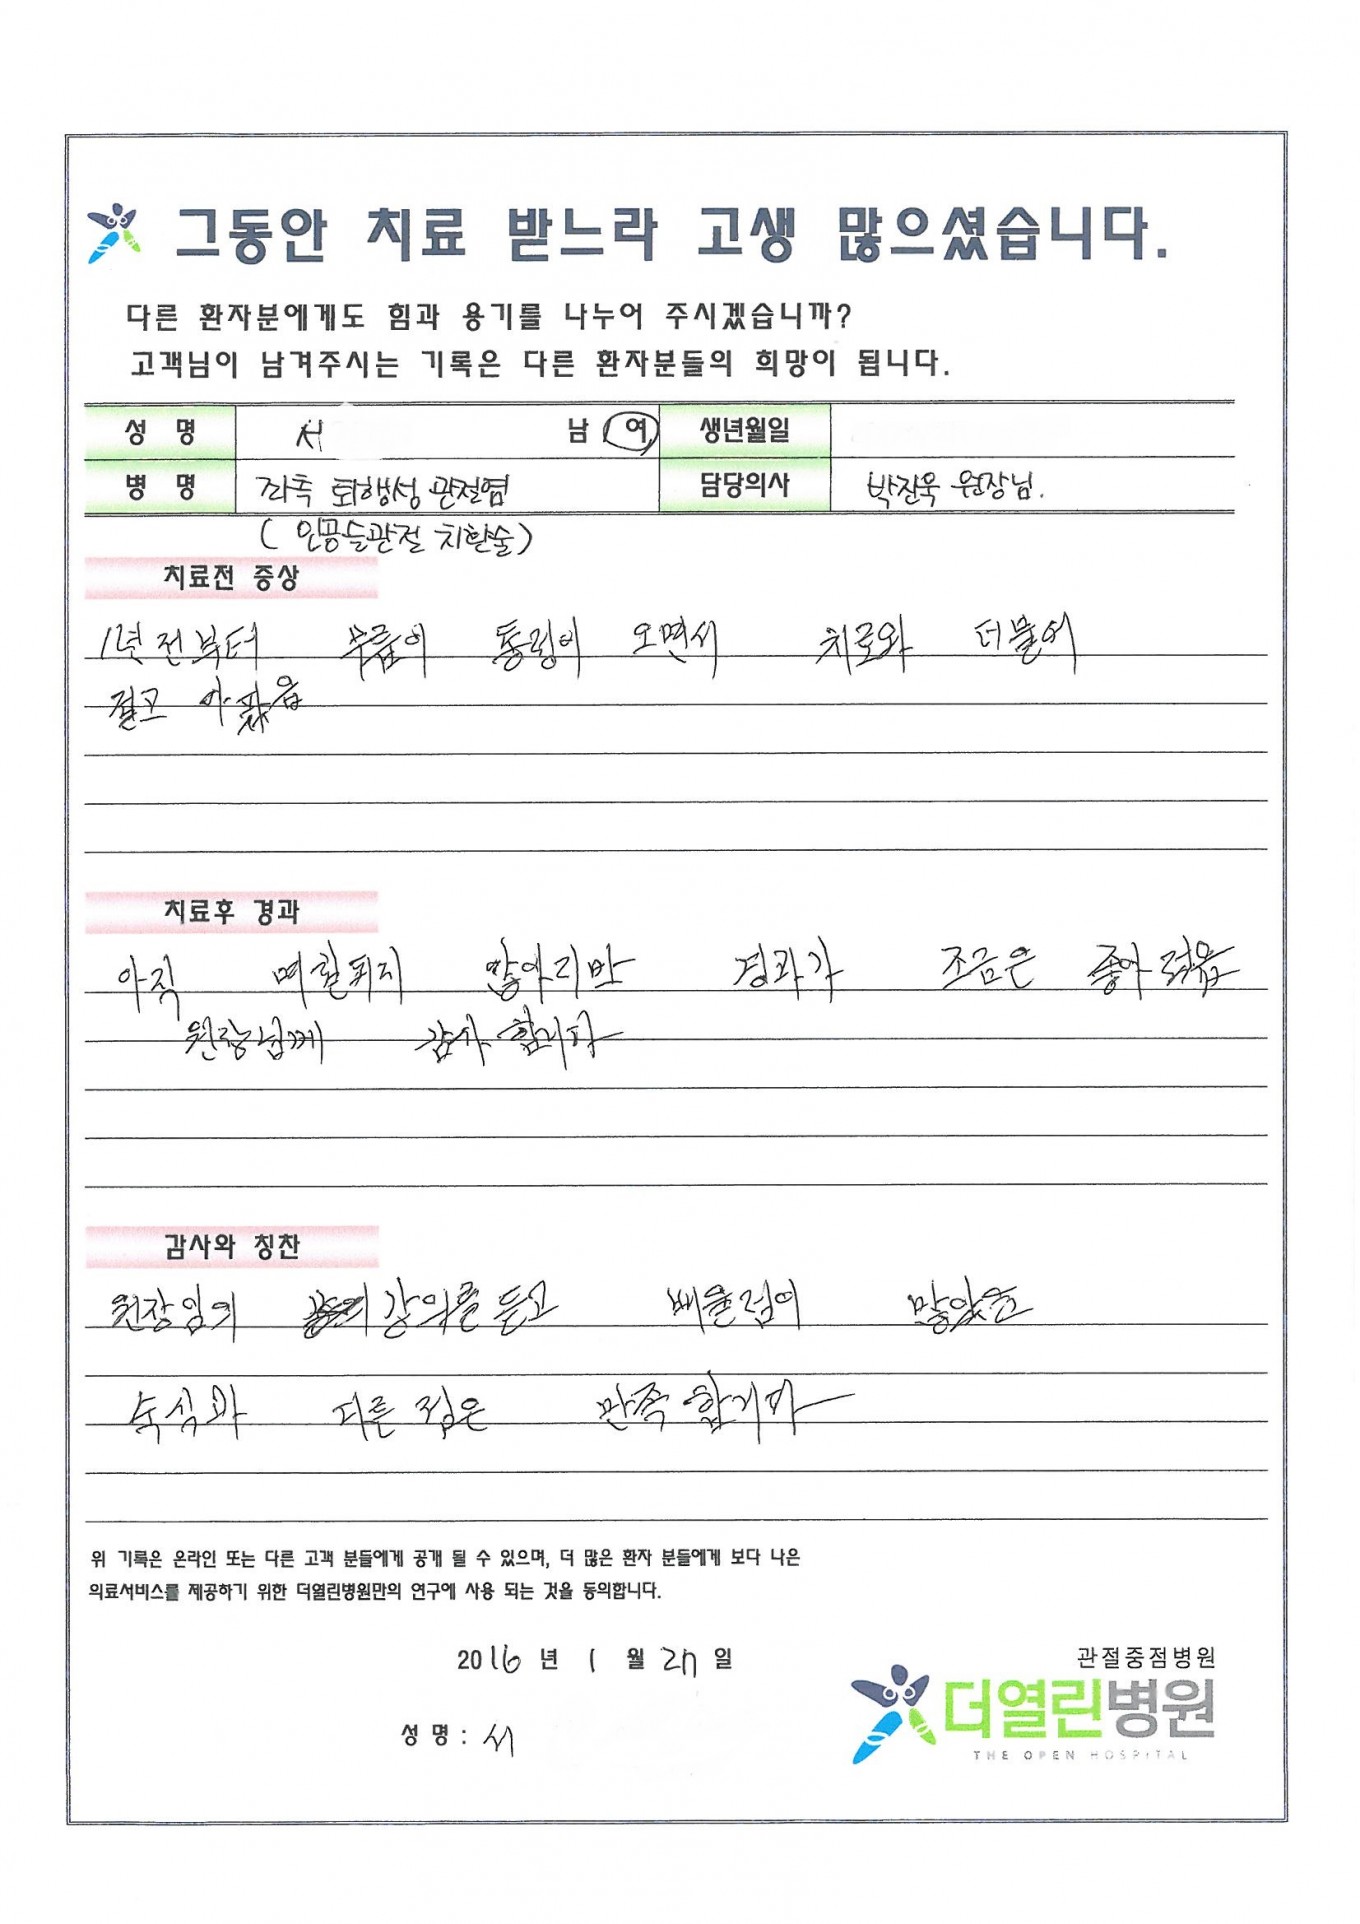 그동안 치료 받느라 고생 많으셨습니다.
다른 환자분에게도 힘과 용기를 나누어 주시겠습니까?
고객님이 남겨주시는 기록은 다른 환자분들의 희망이 됩니다.
성 명 서 남 여 생년월일
병 명 좌측 퇴행성 관절염 담당의사 박진욱 원장님.
(인공슬관절 치환술)
치료전 증상
1년 전부터 무릎이 통링이 오면서 치료와 더불어
걸고 아팠음
치료후 경과
아직 며칠되지 않아리만 경과가 조금은 좋아졌음
원장님께 감사합니다
감사와 칭찬
원장임의 강의를 듣고 배울점이 많았음
숙식과 다른 점은 만족합니다
위 기록은 온라인 또는 다른 고객 분들에게 공개 될 수 있으며, 더 많은 환자 분들에게 보다 나은
의료서비스를 제공하기 위한 더열린병원만의 연구에 사용 되는 것을 동의합니다.
2016 년 1 월 27 일
관절중점병원
더열린병원
THE OPEN HOSPITAL
성 명 : 서